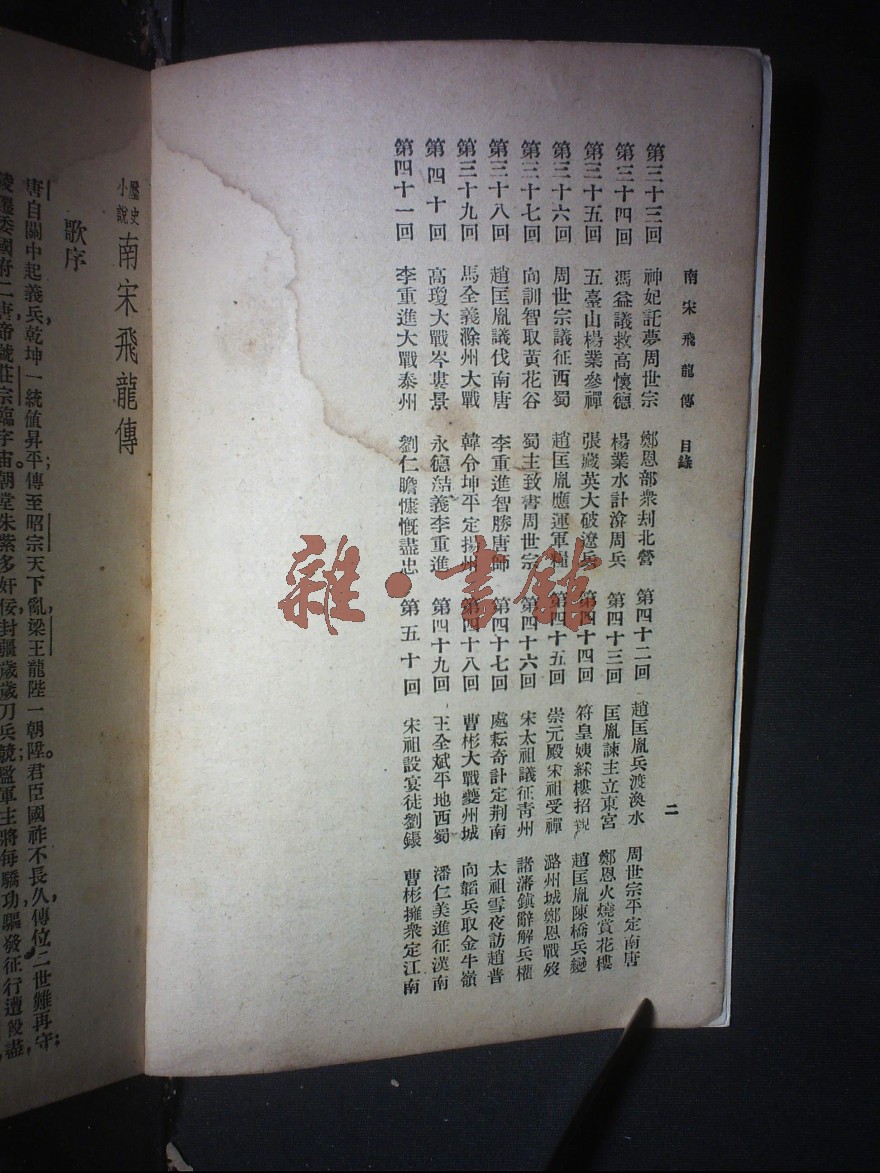 南宋飛龍傳 目錄 二
第三十三回 神妃託夢周世宗 鄭恩部衆刦北營
第三十四回 馮益議救高懷德 楊業水計渰周兵
第三十五回 五臺山楊業參禪 張藏英大破遼兵
第三十六回 周世宗議征西蜀 趙匡胤應運軍糧
第三十七回 向訓智取黃花谷 蜀主致書周世宗
第三十八回 趙匡胤議伐南唐 李重進智勝唐師
第三十九回 馬全義滁州大戰 韓令坤平定揚州
第四十回 高瓊大戰岑婁景 永德結義李重進
第四十一回 李重進大戰泰州 劉仁瞻慷慨盡忠
第四十二回 趙匡胤兵渡渙水 周世宗平定南唐
第四十三回 匡胤諫主立東宮 鄭恩火燒賞花樓
第四十四回 符皇姨綵樓招親 趙匡胤陳橋兵變
第四十五回 崇元殿宋祖受禪 潞州城鄭恩戰歿
第四十六回 宋太祖議征青州 諸藩鎮辭解兵權
第四十七回 處耘奇計定荆南 太祖雪夜訪趙普
第四十八回 曹彬大戰夔州城 向韜兵取金牛嶺
第四十九回 王全斌平地西蜀 潘仁美進征漢南
第五十回 宋祖設宴徒劉鋹 曹彬擁衆定江南
歷史小說 南宋飛龍傳
歌序
唐自關中起義兵，乾坤一統值昇平；傳至昭宗天下亂，梁王龍陛一朝陞。君臣國祚不長久，傳位二世難再守；
陵墨委國府二唐，帝號莊宗臨宇宙。朝堂朱紫多奸佞，封疆歲歲刀兵競；監軍主將每驕功，驅發征行遭殺盡，
雜·書館